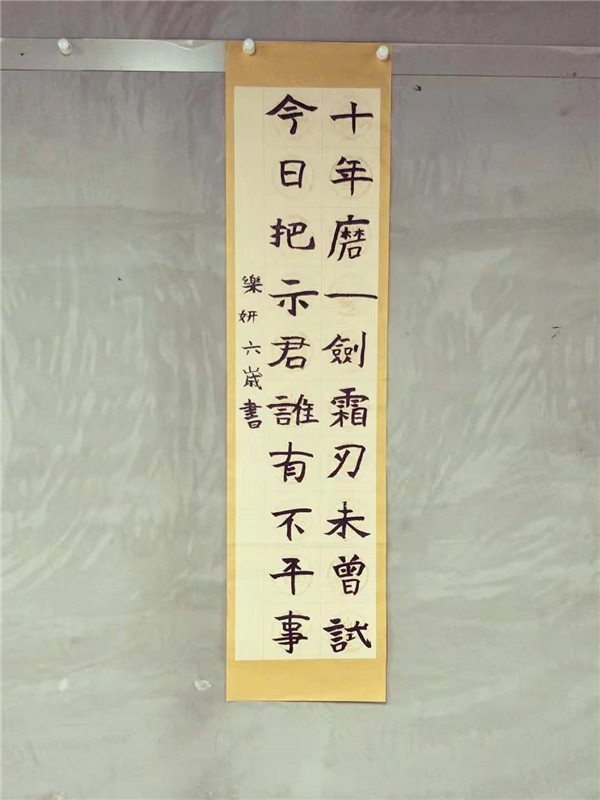 十年磨一劍霜刃未曾試
今日把示君誰有不平事
樂妍六歲書